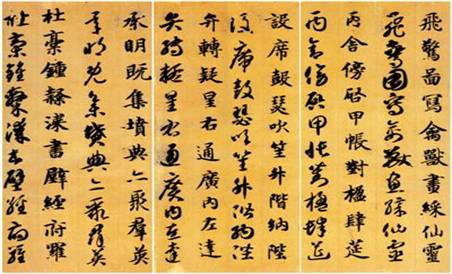 飛驚圖寫禽獸畫綵仙靈
飛驚圖寫禽獸畫綵仙靈
丙舍傍啓甲帳對楹肆筵
丙舍傍啓甲帳對楹肆筵
設席鼓瑟吹笙升階納陛
設席鼓瑟吹笙升階納陛
弁轉疑星右通廣內左達
弁轉疑星右通廣內左達
承明既集墳典亦聚羣英
承明既集墳典亦聚羣英
杜稾鍾隸漆書壁經府羅
杜稾鍾隸漆書壁經府羅